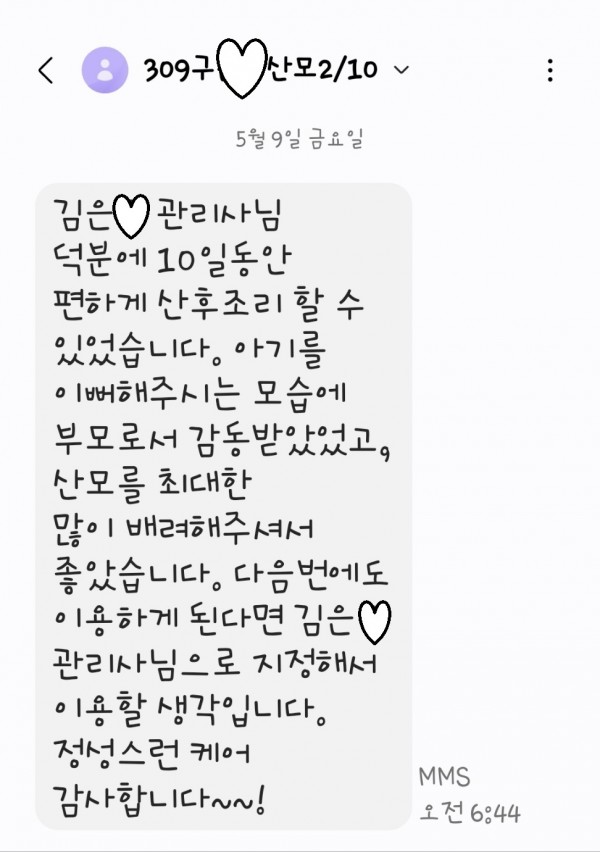 309구 산모2/10
5월 9일 금요일
김은 관리사님
덕분에 10일동안
편하게 산후조리 할 수
있었습니다. 아기를
이뻐해주시는 모습에
부모로서 감동받았었고,
산모를 최대한
많이 배려해주셔서
좋았습니다. 다음번에도
이용하게 된다면 김은
관리사님으로 지정해서
이용할 생각입니다.
정성스런 케어
감사합니다~~!
MMS
오전 6:44